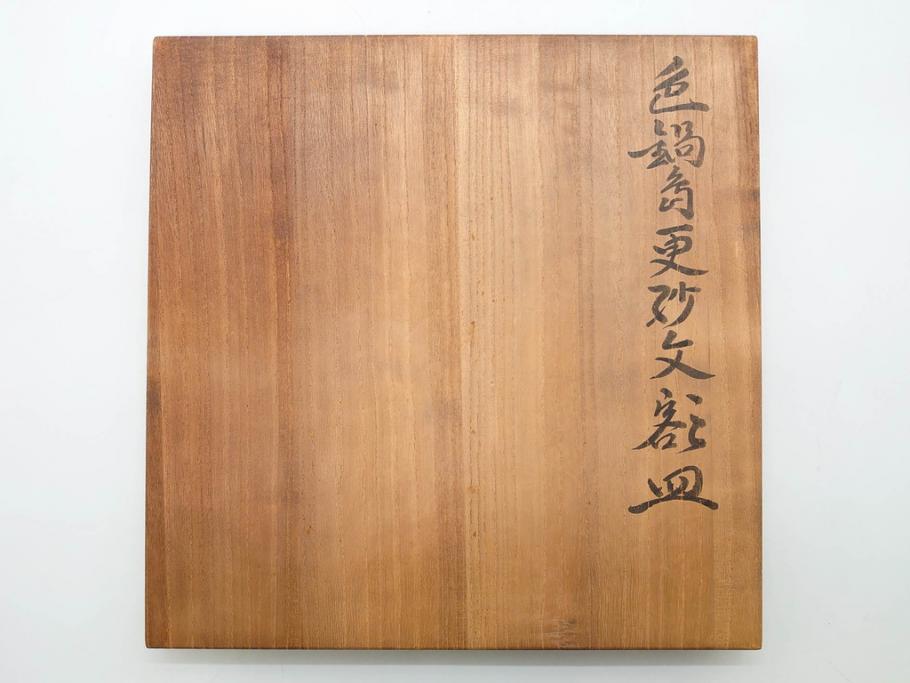 色鍋島更紗文額皿